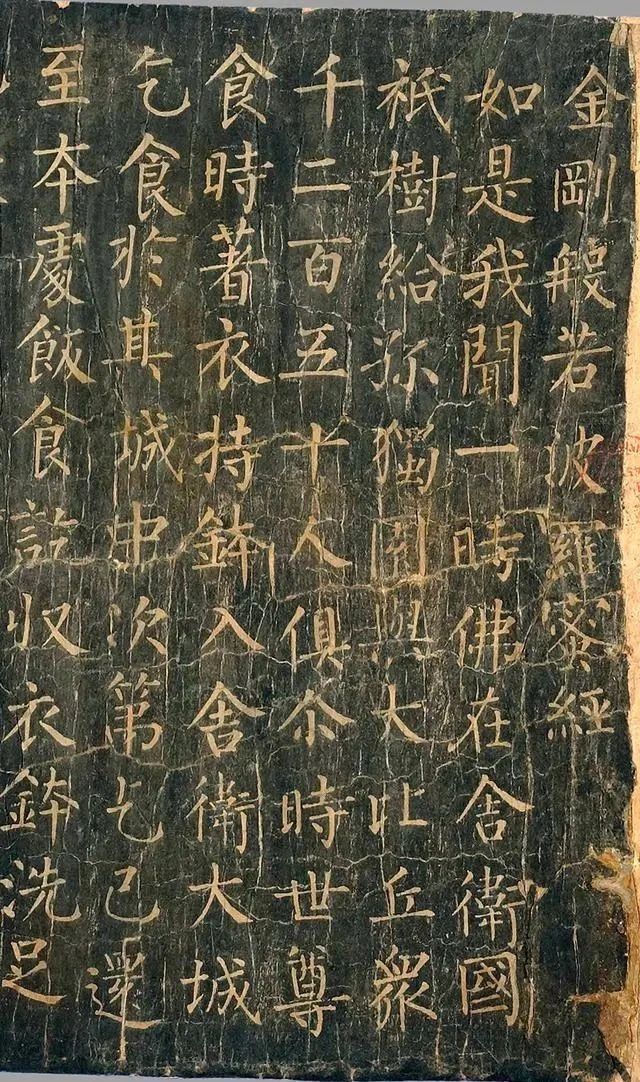 金剛般若波羅蜜經
如是我聞一時佛在舍衛國
祇樹給孤獨園與大比丘眾
千二百五十人俱尒時世尊
食時著衣持鉢入舍衛大城
乞食於其城中次第乞已還
至本處飯食訖収衣鉢洗足